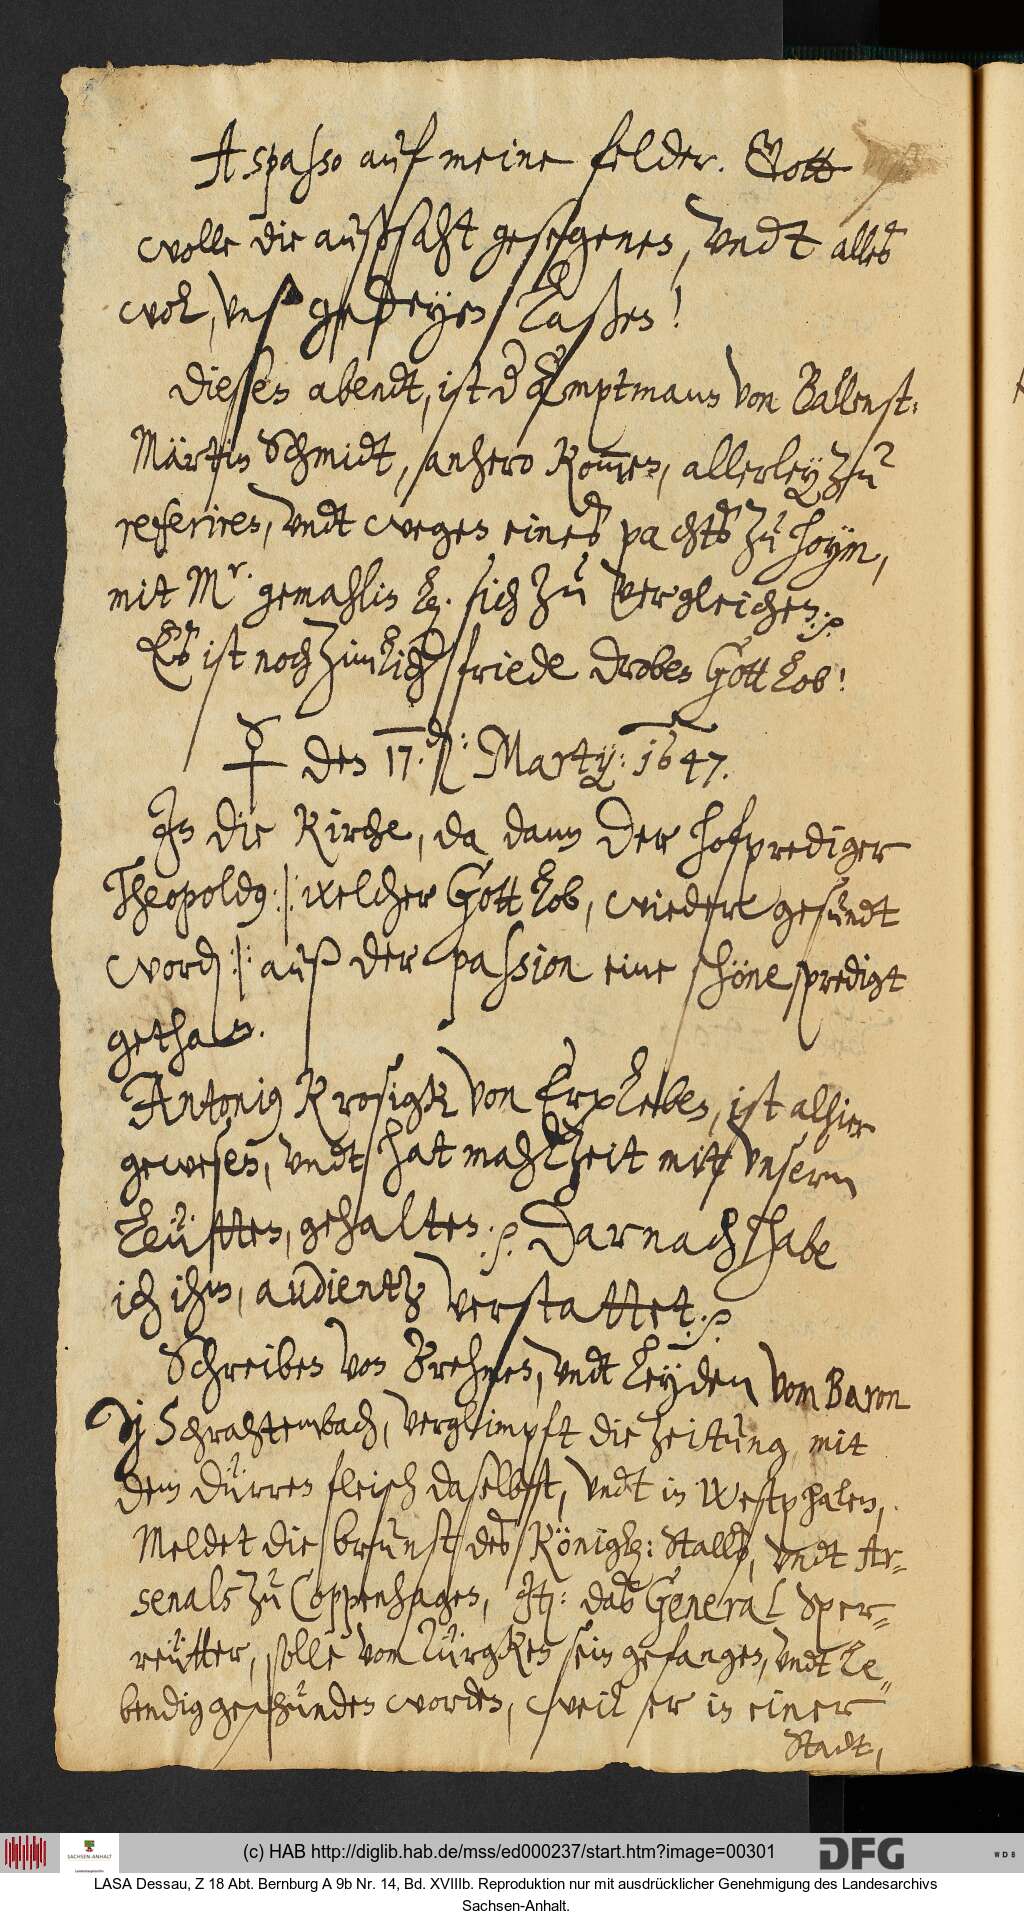 A spasso auf meine felder. Gott
wolle die außsaht gesegenen, vndt alles
wol, vns gedeyen laßen!
Diesen abendt, ist der Amptmann von Ballenst:
Märtin Schmidt, anhero kommen, allerley zu
referiren, vndt wegen eines pachts zu Hoym,
mit Mr. gemahlin sich zu vergleichen.
Es ist noch zimlich friede droben Gott lob!
☿ den 17. Martij: 1647.
In die Kirche, da dann der hofprediger
Theopoldus :|: welcher Gott lob, wieder gesundt
worden :|: auß der passion eine schöne predigt
gethan.
Antonius Krosigk von Erxleben, ist alhier
gewesen, vndt hat mahlzeit mit vnsern
leütten, gehalten. Darnach habe
ich ihm, audientz verstattet.
Schreiben von Brehmen, vndt leyden vom Baron
Di Schrahtembach, verglimpft die zeitung, mit
dem dürren fleisch daselbst, vndt in Westphalen,
Meldet die brunst des Königl: Stalls, vndt Ar-
senals zu Coppenhagen, It: das General Sper-
reütter, solle vom Türgken sein gefangen, vndt le-
bendig geschunden worden, weil er in einer
Stadt,
(c) HAB http://diglib.hab.de/mss/ed000237/start.htm?image=00301
SACHSEN-ANHALT
DFG
W D B
LASA Dessau, Z 18 Abt. Bernburg A 9b Nr. 14, Bd. XVIIIb. Reproduktion nur mit ausdrücklicher Genehmigung des Landesarchivs
Sachsen-Anhalt.